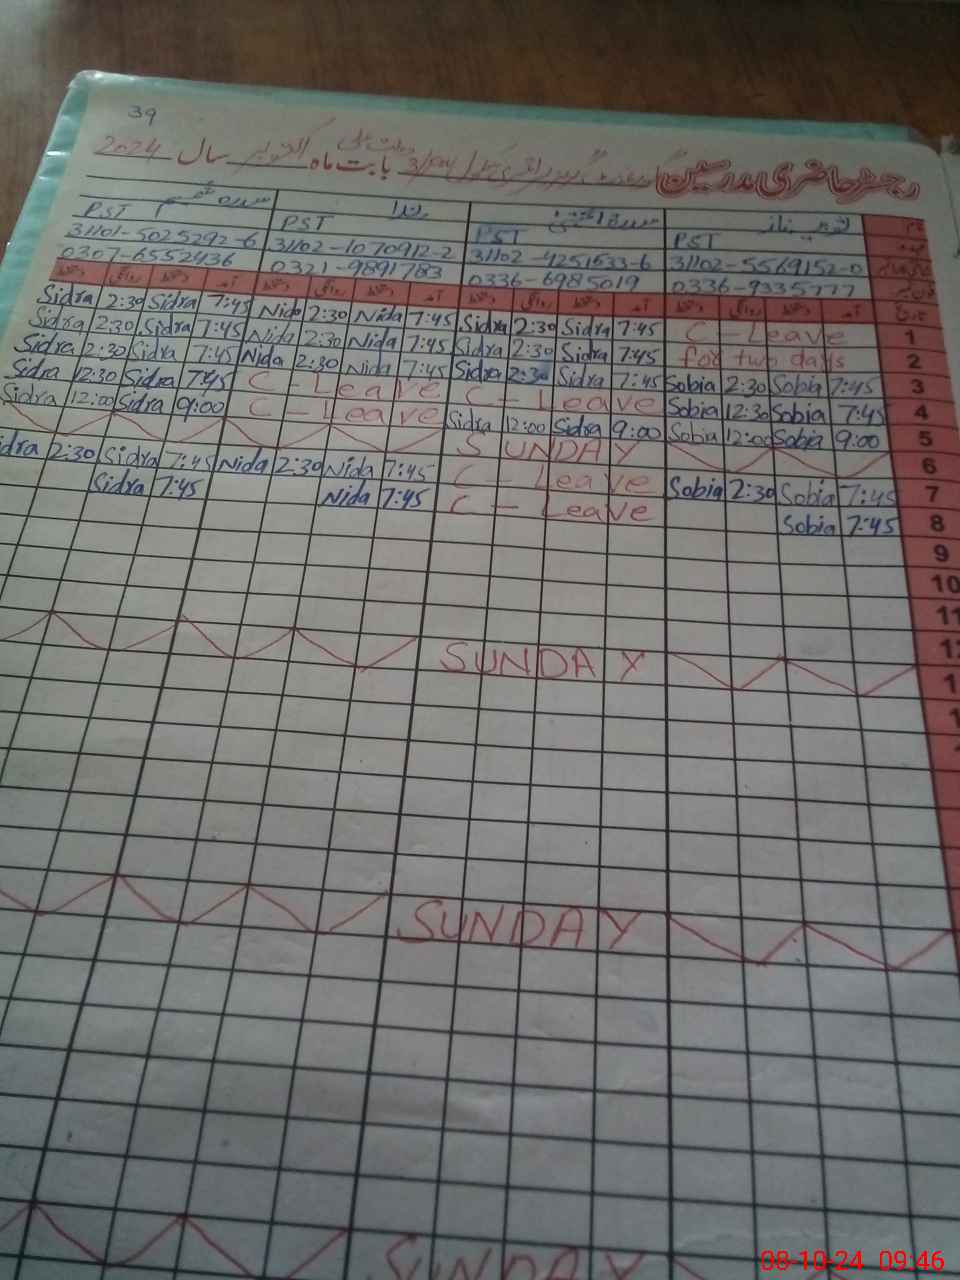 39
رجسٹر حاضری مدرسین
بابت ماہ اکتوبر سال 2024
PST PST PST PST
31101-5025292-6 31102-1070912-2 31102-4251533-6 31102-5569152-0
0307-6552436 0321-9891783 0336-6985019 0336-9335777
Sidra 2:30 Sidra 7:45 Nida 2:30 Nida 7:45 Sidra 2:30 Sidra 7:45 C - Leave 1
Sidra 2:30 Sidra 7:45 Nida 2:30 Nida 7:45 Sidra 2:30 Sidra 7:45 for two days 2
Sidra 2:30 Sidra 7:45 Nida 2:30 Nida 7:45 Sidra 2:30 Sidra 7:45 Sobia 2:30 Sobia 7:45 3
Sidra 12:30 Sidra 7:45 C - Leave C - Leave Sobia 12:30 Sobia 7:45 4
Sidra 12:00 Sidra 9:00 C - Leave Sidra 12:00 Sidra 9:00 Sobia 12:00 Sobia 9:00 5
SUNDAY 6
idra 2:30 Sidra 7:45 Nida 2:30 Nida 7:45 C - Leave Sobia 2:30 Sobia 7:45 7
Sidra 7:45 Nida 7:45 C - Leave Sobia 7:45 8
9
10
11
12
SUNDAY 1
SUNDAY
SUNDAY
08-10-24 09:46